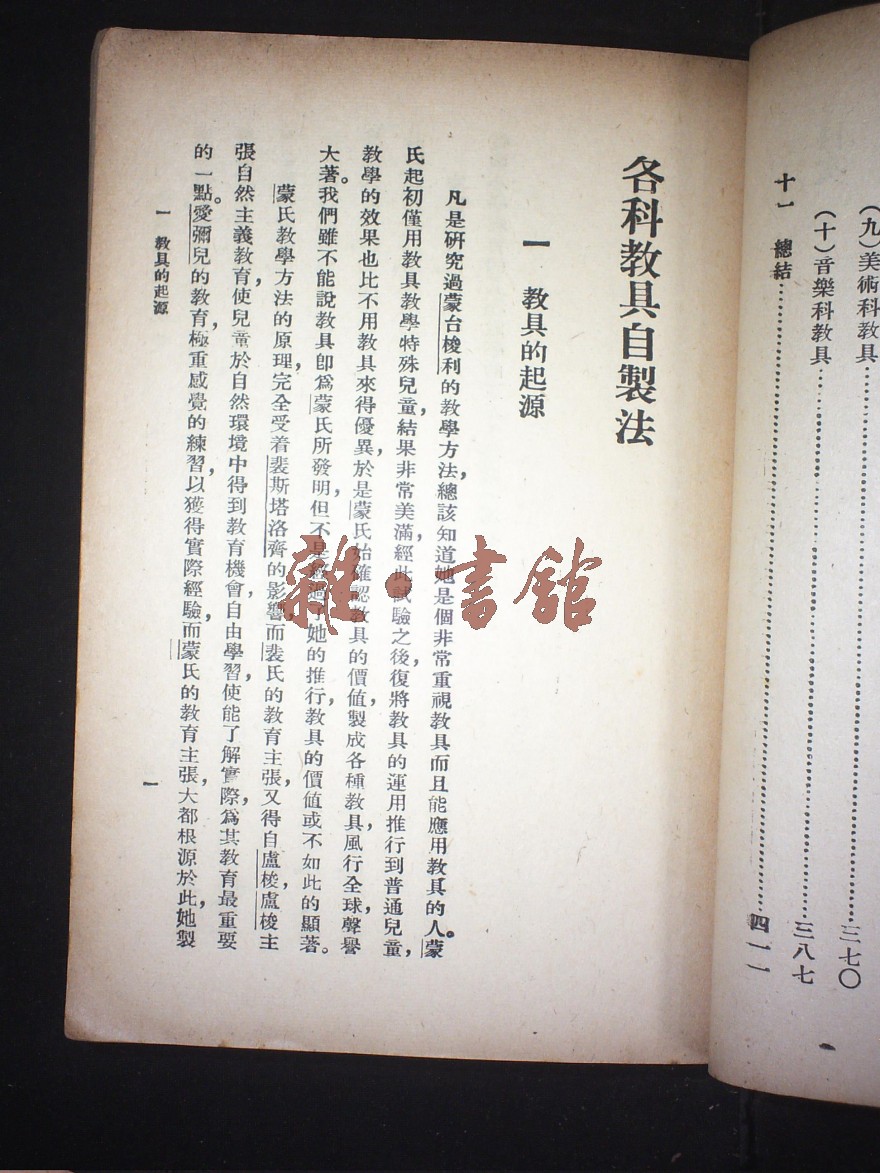 (九)美術科教具……三七〇
(十)音樂科教具……三八七
十一 總結……四一一
各科教具自製法
一 教具的起源
凡是研究過蒙台梭利的教學方法,總該知道她是個非常重視教具而且能應用教具的人。蒙
氏起初僅用教具教學特殊兒童,結果非常美滿,經此試驗之後,復將教具的運用推行到普通兒童,
教學的效果也比不用教具來得優異,於是蒙氏始確認教具的價值,製成各種教具,風行全球,聲譽
大著。我們雖不能說教具卽爲蒙氏所發明,但不是經過了她的推行,教具的價值或不如此的顯著。
蒙氏教學方法的原理,完全受着裴斯塔洛齊的影響,而裴氏的教育主張,又得自盧梭,盧梭主
張自然主義教育,使兒童於自然環境中得到教育機會,自由學習,使能了解實際,爲其教育最重要
的一點。愛彌兒的教育,極重感覺的練習,以獲得實際經驗,而蒙氏的教育主張,大都根源於此,她製
一 教具的起源
一
雜·書館